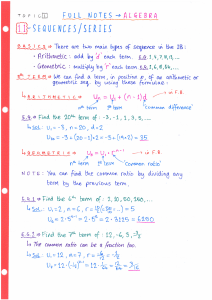 TOPIC 1 FULL NOTES → ALGEBRA
1.1 - SEQUENCES/SERIES
BASICS → There are two main types of sequence in the IB:
· Arithmetic : add by 'd' each term
· Geometric : multiply by 'r' each term
nth TERM → We can find a term, in position n, of an arithmetic
or geometric seq. by using these formulae:
↳ ARITHMETIC → Un = U1 + (n-1)d → in F.B
nth term 1st term "common difference"
E.g Find the 20th term of : -3, -1, 1, 3, 5, ...
↳ Sol : U1 = -3, n = 20, d = 2
U20 = -3 + (20-1)2 = -3 + (19×2) = 35
↳ GEOMETRIC → in F.B
nth term 1st term "common ratio"
NOTE : You can find the common ratio by dividing any
term by the previous term.
E.g.1 Find the 6th term of : 2, 10, 50, 250, ...
↳ Sol : U1 = 2, n = 6, r = 5
U6 = 2·5⁶⁻¹ = 2·5⁵ = 2·3125 = 6250
E.g.2 Find the 7th term of : 12, -6, 3,
↳ The common ratio can be a fraction too.
↳ Sol : U1 = 12, n = 7,